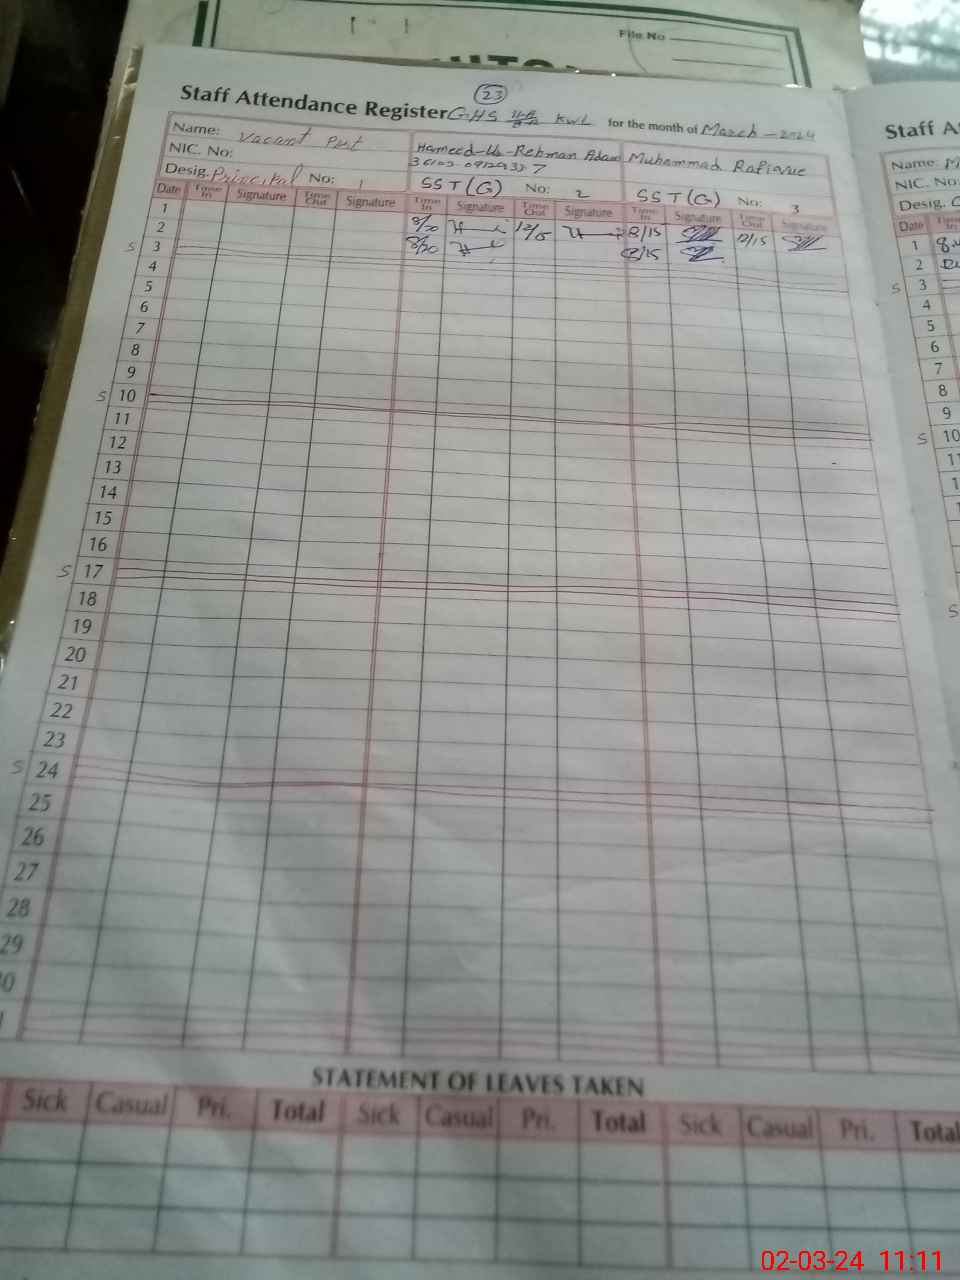 File No
23
Staff Attendance Register GHS KWL for the month of March - 2024
Name: Vacant Post Hameed-Ur-Rehman Muhammad Rafique
NIC. No:
Desig. Principal No: 1 SST(G) No: 2 SST(G) No: 3
Date Time In Signature Time Out Signature Time In Signature Time Out Signature Time In Signature Time Out Signature
1 8/20 12/5 8/15 12/15
2 8/20 8/15
S 3
4
5
6
7
8
9
S 10
11
12
13
14
15
16
S 17
18
19
20
21
22
23
S 24
25
26
27
28
29
STATEMENT OF LEAVES TAKEN
Sick Casual Pri. Total Sick Casual Pri. Total Sick Casual Pri. Total
Staff
Name:
NIC. No:
Desig.
Date Time In
1
2
S 3
4
5
6
7
8
9
S 10
S
02-03-24 11:11